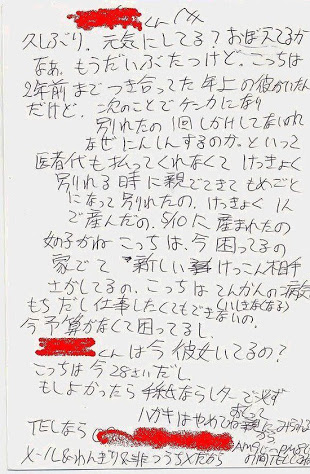 くんへ
久しぶり。元気にしてる？おぼえてるか
なぁ、もうだいぶたつけど。こっちは
2年前までつき合ってた年上の彼がいたん
だけど、次のことでケンカになり
別れたの1回しかけしてないのに
なぜにんしんするのか。といって
医者代も払ってくれなくてけっきょく
別れる時に親でてきてもめごと
になって別れたの、けっきょく1人
で産んだの。5/10に産まれたの
女の子がね こっちは、今困ってるの
家でて 新しいけっこん相手
さがしてるの、こっちはてんかんの病気
もちだし仕事したくてもできないの、
(いしきなくなる)
今予算がなくて困ってるし、
くんは今彼女いてるの？
こっちは今28さいだし
もしよかったら手紙ならレターで必ず
おくって
ハガキはやめてね
TELなら
AM9:00～PM8:00
の間TELしてね
メールとわんぎりと非つうちXだから